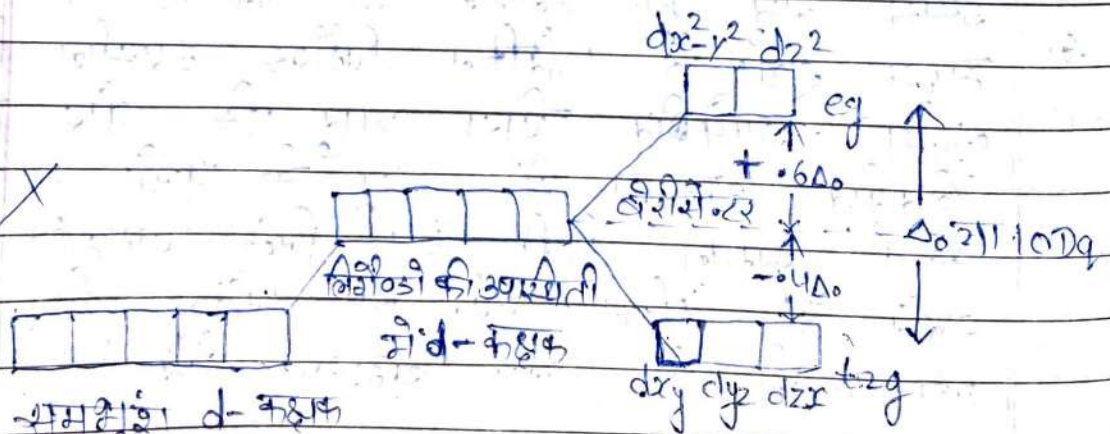 dx²-y² dz²
eg
+ .6Δ₀
बैरीसेन्टर
Δ₀ या 10Dq
लिगेण्डो की उपस्थिती
-.4Δ₀
में d- कक्षक
dxy dyz dzx t2g
समभ्रंश d- कक्षक